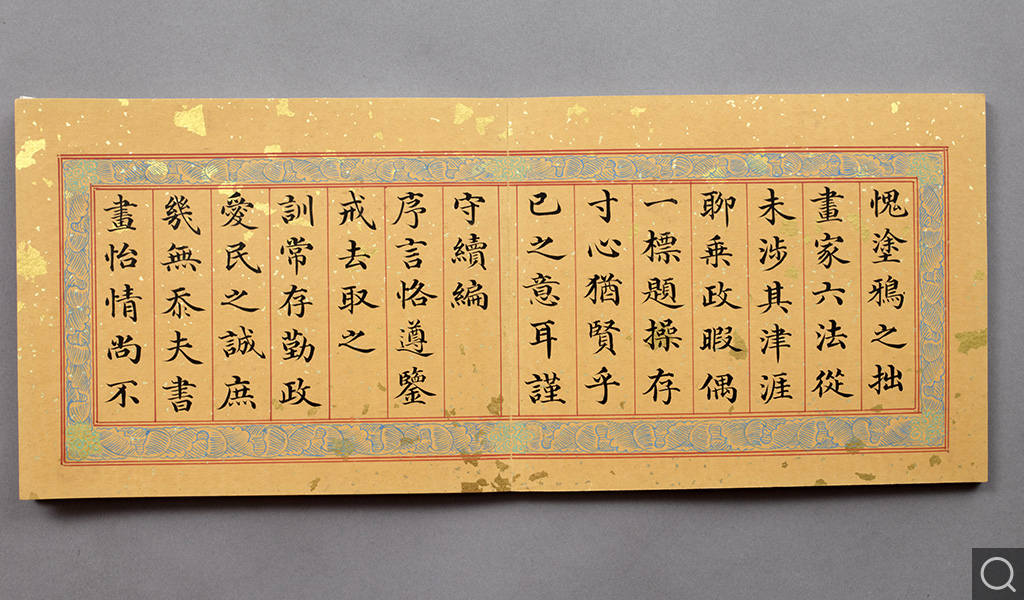 愧塗鴉之拙
畫家六法從
未涉其津涯
聊乘政暇偶
一標題操存
寸心猶賢乎
已之意耳謹
守續編
序言恪遵鑒
戒去取之
訓常存勤政
愛民之誠庶
幾無忝夫書
畫怡情尚不